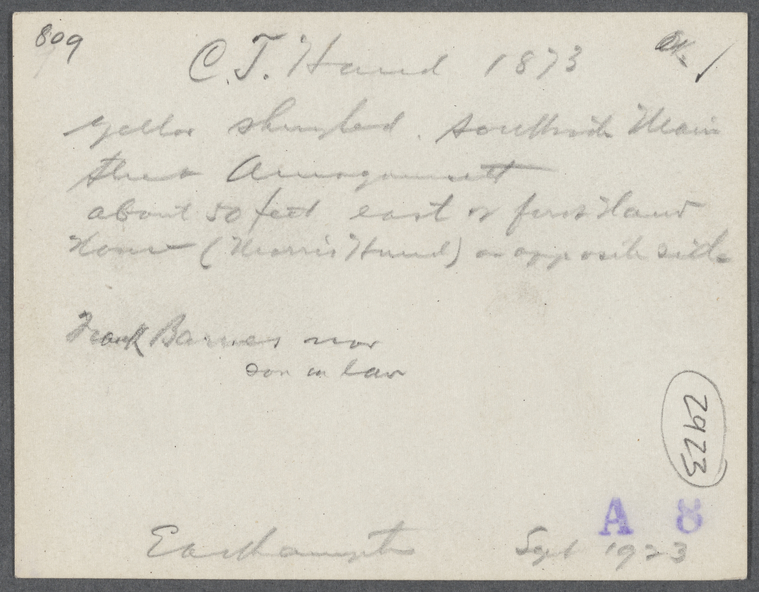 809
C. T. Hand 1873
OK ✓
Yellow shingled. Southside Main
Street Amagansett
about 50 feet east of first Hand
House (Morris Hand) on opposite side
Frank Barnes now
son in law
2923
A 8
Easthampton Sept 1923